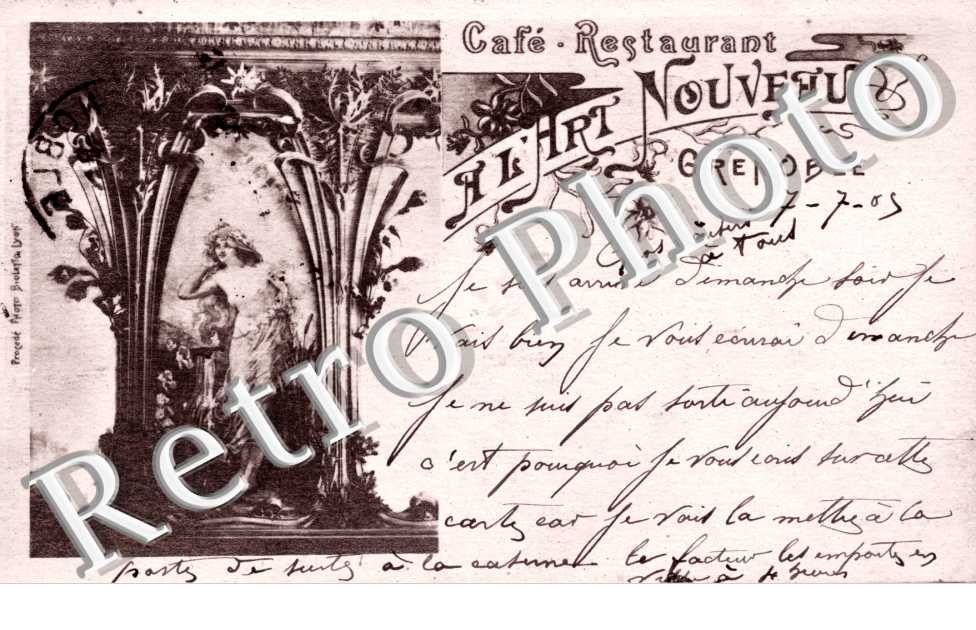 Café - Restaurant
A L'ART NOUVEAU
GRENOBLE
7-7-05
à tous
Je suis arrivé dimanche soir Je
vais bien Je vous écrirai dimanche
Je ne suis pas sorti aujourd'hui
c'est pourquoi Je vous écris sur cette
carte car Je vais la mettre à la
porte de suite à la caserne le facteur les emporte en
ville à 4 heures
Procédé Photo Lyon
Retro Photo